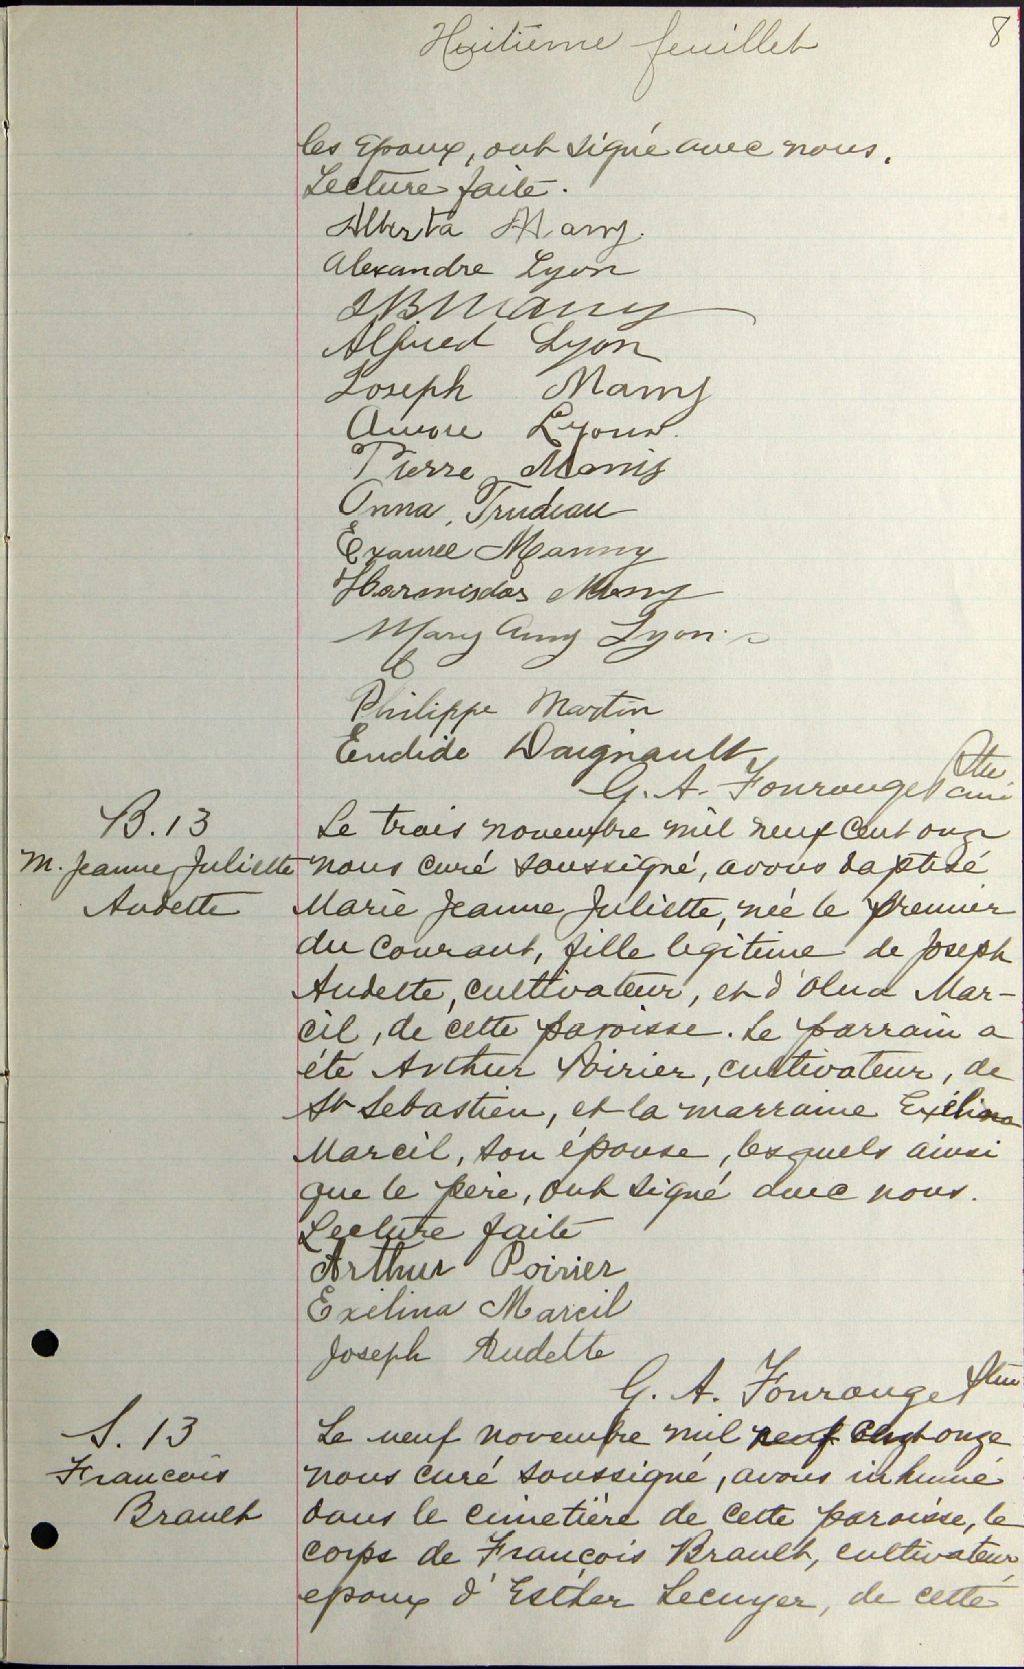 Huitième feuillet 8
les époux, ont signé avec nous.
Lecture faite.
Alberta Many.
Alexandre Lyon
J B Many
Alfred Lyon
Joseph Many
Aurore Lyon
Pierre Many
Anna Trudeau
Exaurée Manny
Hormisdas Many
Mary Amy Lyon
Philippe Martin
Euclide Daignault
G. A. Fourouge Ptre curé
B. 13
M. Jeanne Juliette
Audette
Le trois novembre mil neuf cent onze
nous curé soussigné, avons baptisé
Marie Jeanne Juliette, née le premier
du courant, fille légitime de Joseph
Audette, cultivateur, et d'Olua Mar-
cil, de cette paroisse. Le parrain a
été Arthur Poirier, cultivateur, de
St Sebastien, et la marraine Exélina
Marcil, son épouse, lesquels ainsi
que le père, ont signé avec nous.
Lecture faite
Arthur Poirier
Exilina Marcil
Joseph Audette
G. A. Fourouge Ptre
S. 13
Francois
Brault
Le neuf novembre mil neuf cent onze
nous curé soussigné, avons inhumé
dans le cimetière de cette paroisse, le
corps de François Brault, cultivateur,
epoux d'Esther Lecuyer, de cette